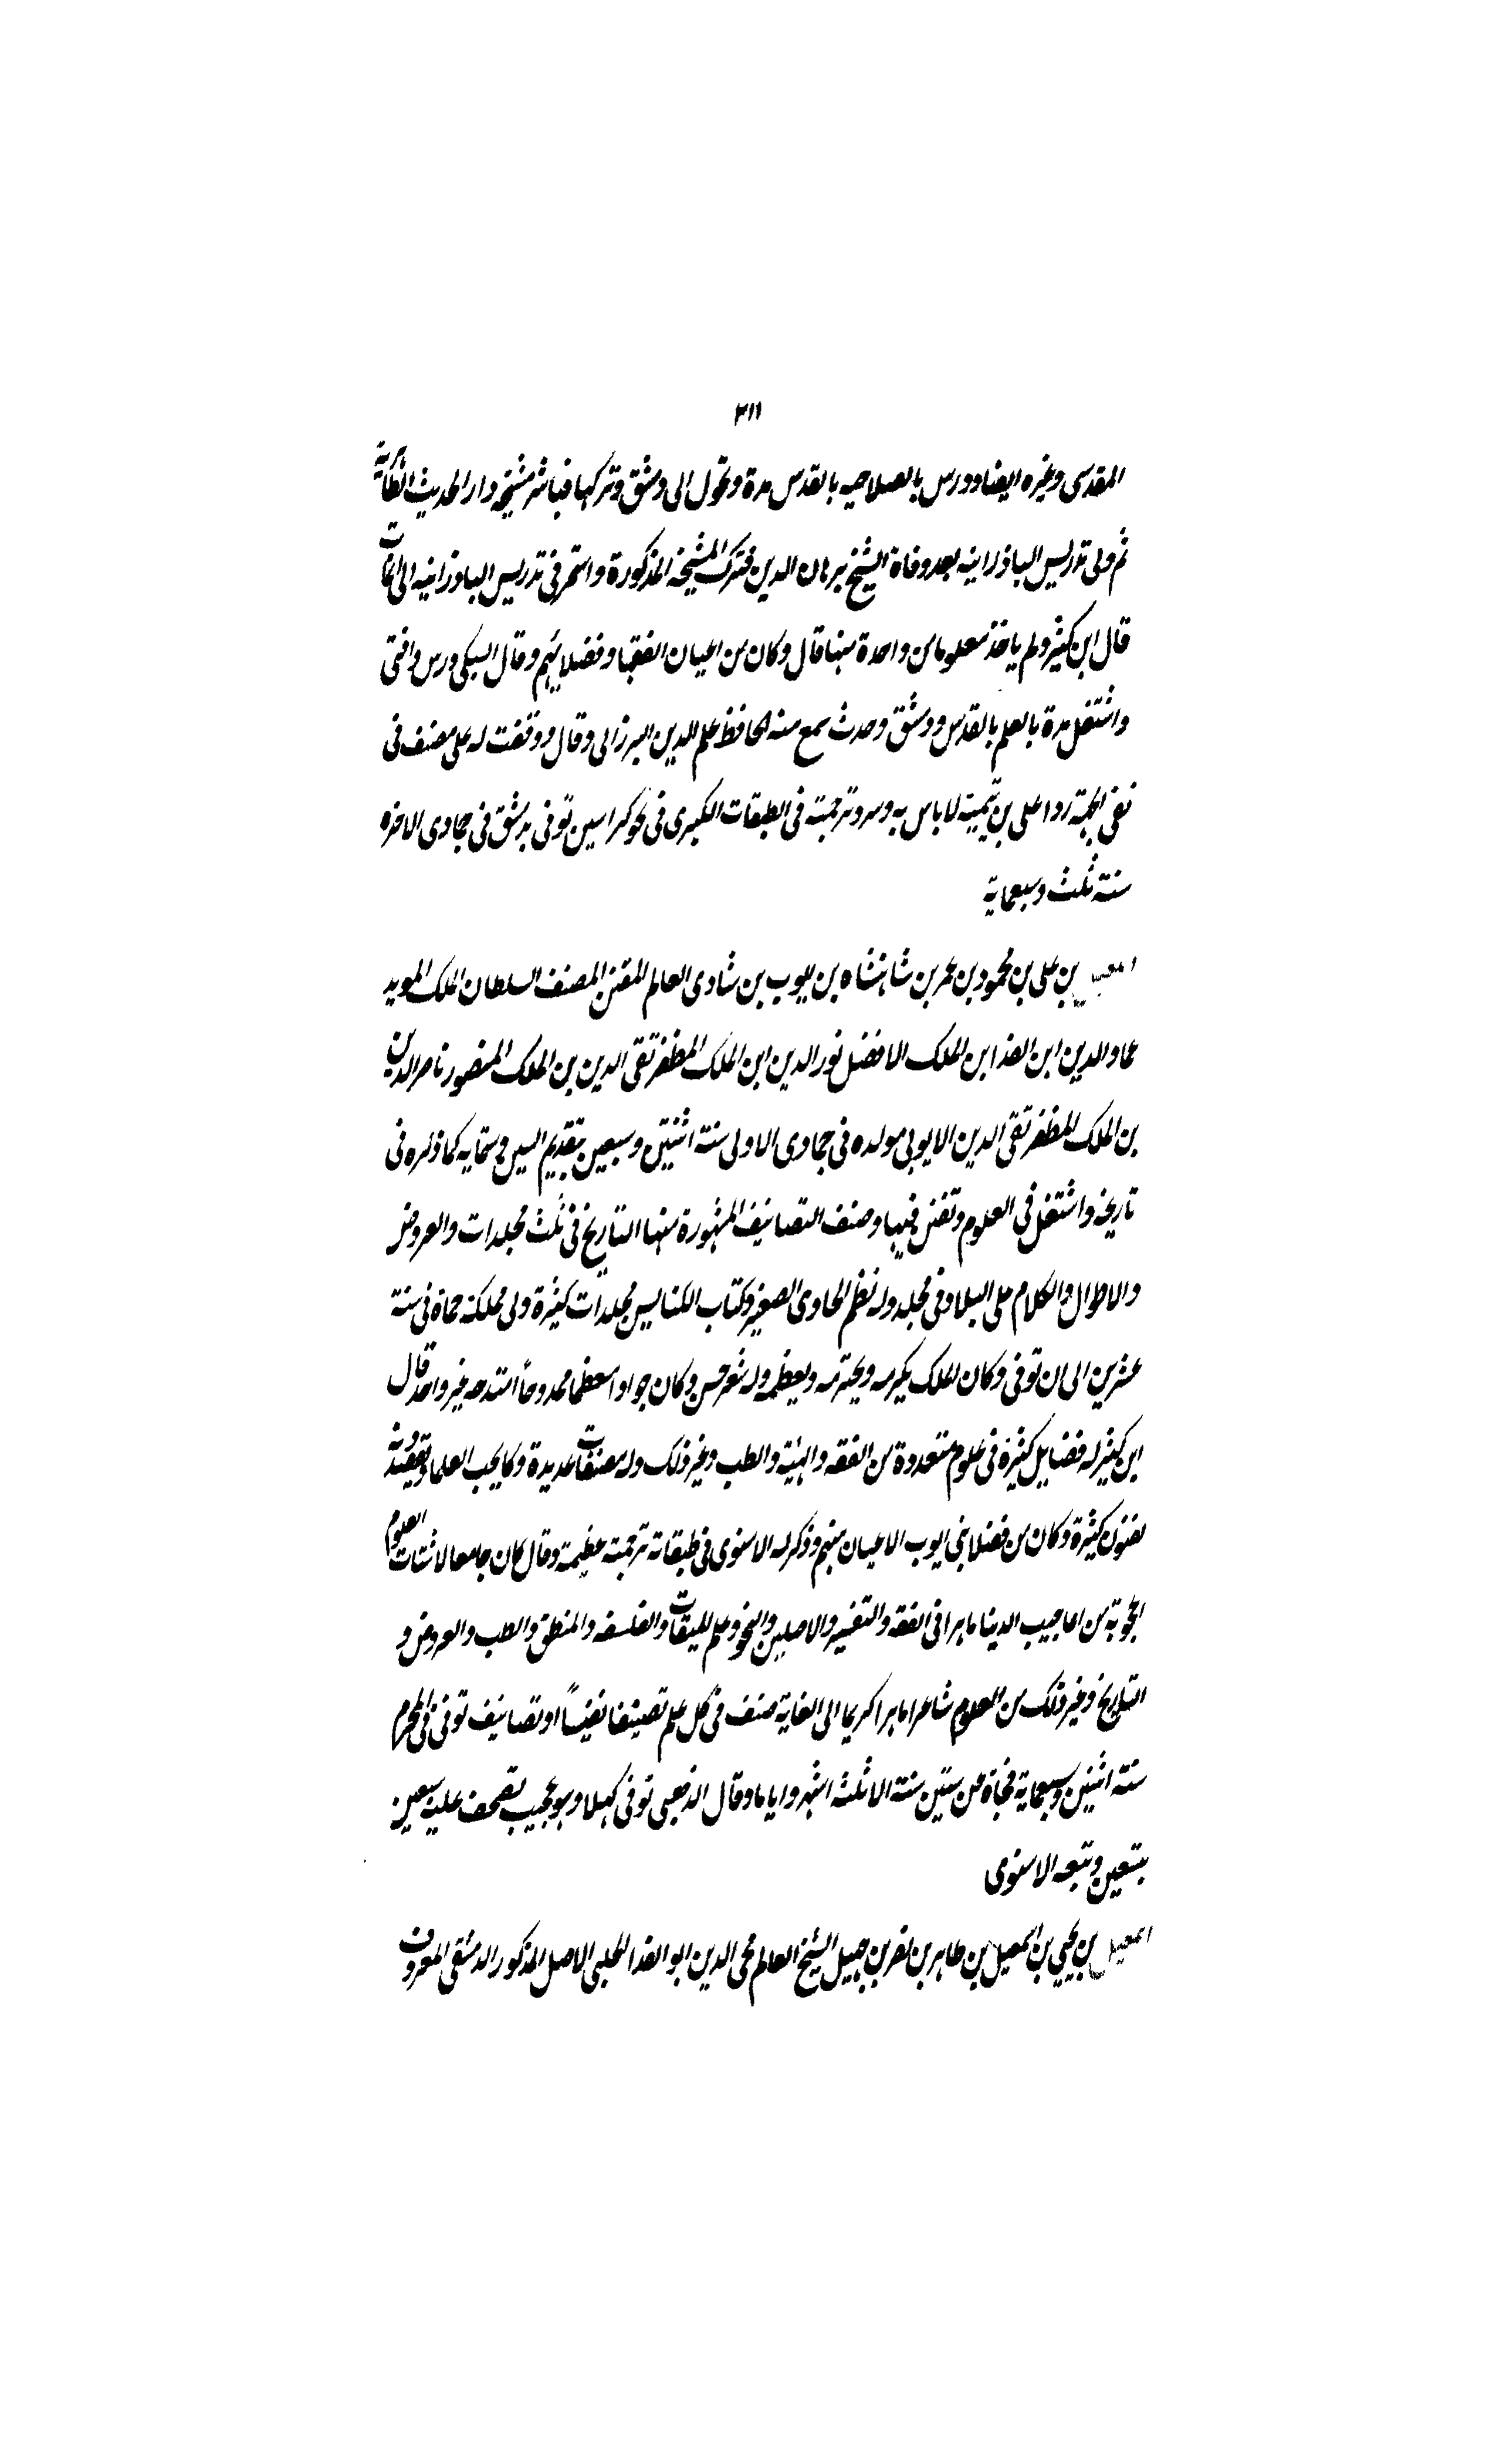 ٣١١
المقدسى وغيره ايضا ودرس بالصلاحيه بالقدس مدة وتحول الى دمشق وتركها فباشر مشيخه دار الحديث الظاهرية
ثم ولى تدريس الباذرانيه بعد وفاة الشيخ برهان الدين فترك المشيخه المذكورة واستمر فى تدريس الباذرانيه الى ان مات
قال ابن كثير ولم ياخذ معلوما من واحدة منهما قال وكان من اعيان الفقها وفضلايهم وقال السبكى درس وافتى
واشتغل مدة بالعلم بالقدس ودمشق وحدث سمع منه الحافظ علم الدين البرزالى وقال ووقفت له على مصنف فى
نفى الجهة ردا على بن تيمية لا باس به وسرد ترجمته فى الطبقات الكبرى فى نحو كراسين توفى بدمشق فى جمادى الاخره
سنة ثلث وسبعماية
اسمعيل بن على بن محمود بن عمر بن شاهنشاه بن ايوب بن شادى العالم المفنن المصنف السلطان الملك المويد
عماد الدين ابن الفدا بن الملك الافضل نور الدين ابن الملك المظفر تقى الدين بن الملك المنصور ناصر الدين
بن الملك المظفر تقى الدين الايوبى مولده فى جمادى الاولى سنة اثنتين وسبعين بتقديم السين وستمايه كما ذكره فى
تاريخه واشتغل فى العلوم وتفنن فيها وصنف التصانيف المشهورة منها التاريخ فى ثلث مجلدات والعروض
والاطوال والكلام على البلاد فى مجلد وله نظم الحاوى الصغير وكتاب الكنايس مجلدات كثيرة ولى مملكة حماة فى سنة
عشرين الى ان توفى وكان الملك يكرمه ويحترمه ويعظمه وله شعر حسن وكان جوادا معظما ممدوحا امتدحه غير واحد قال
ابن كثير له فضايل كثيرة فى علوم متعددة من الفقه والهيئة والطب وغير ذلك وله مصنفات عديدة وكا يحب العلما ويقصدونه
لفنون كثيرة وكان من فضلا بنى ايوب الاعيان منهم وذكر له الاسنوى فى طبقاته ترجمة عظيمة وقال كان جامعا لاشتات العلوم
اعجوبة من اعاجيب الدنيا ماهرا فى الفقه والتفسير والاصلين والنحو وعلم الميقات والفلسفه والمنطق والطب والعروض و
التاريخ وغير ذلك من العلوم شاعرا ماهرا كريما الى الغاية صنف فى كل علم تصنيفا نفيساً او تصانيف توفى فى المحرم
سنة اثنين وسبعماية فجاة عن ستين سنة الا ثلثة اشهر واياما وقال الذهبى توفى كهلا وهو عجيب تصحف عليه سبعين
بتسعين وتبعه الاسنوى
اسمعيل بن يحيى بن اسمعيل بن طاهر بن نصر بن جهبل الشيخ العالم محى الدين ابو الفدا الحلبى الاصل المذكور الدمشقى المعروف